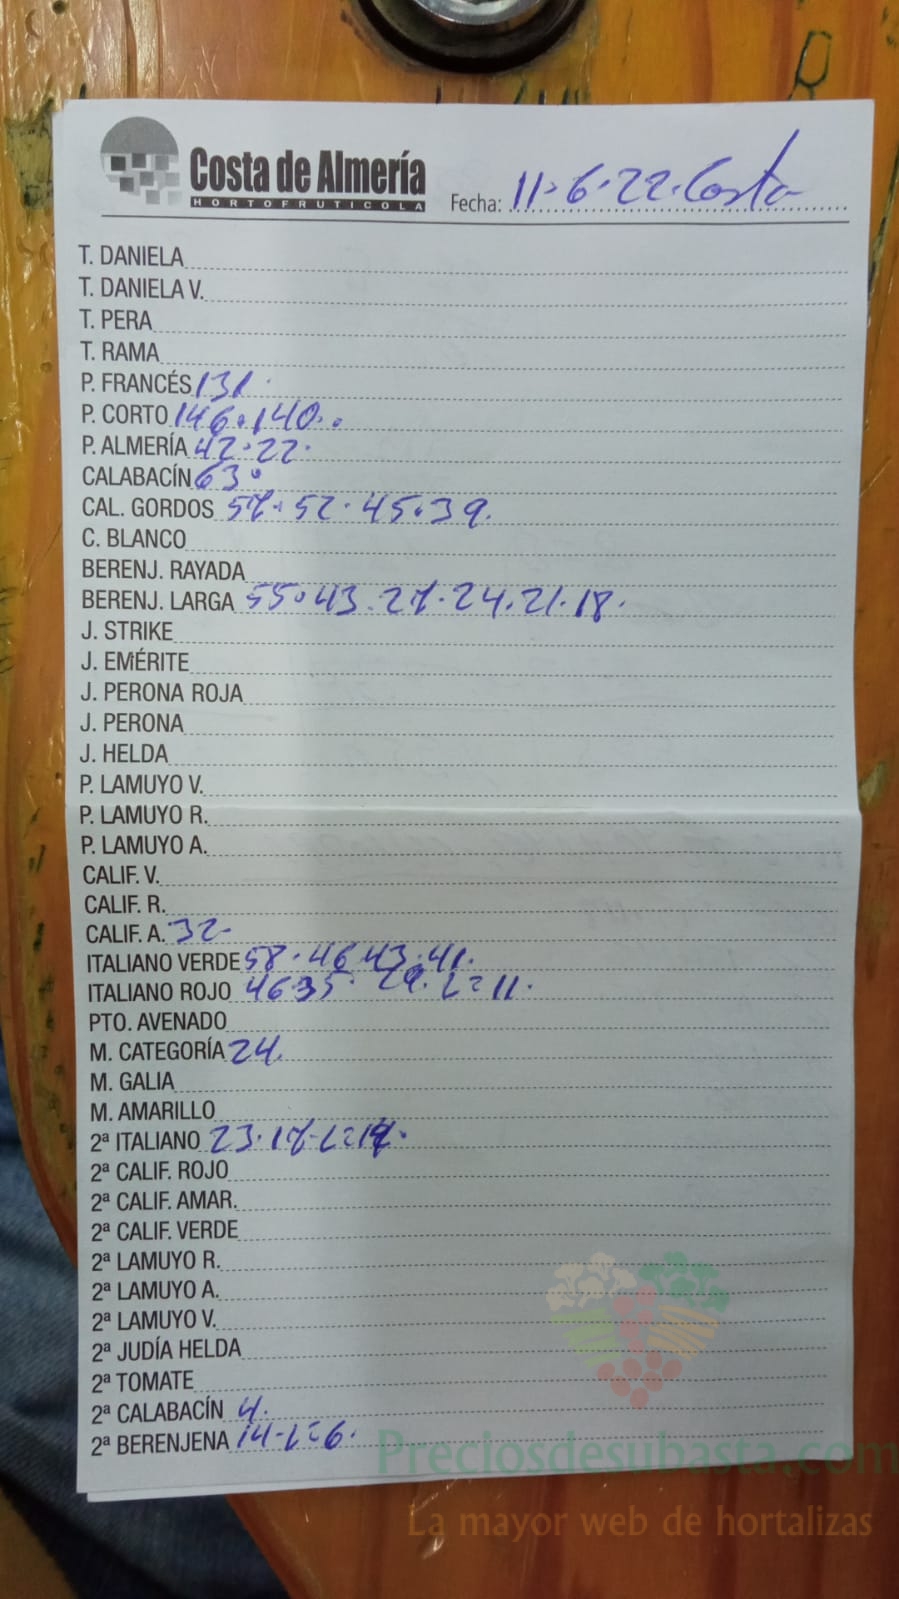 Costa de Almería
HORTOFRUTICOLA
Fecha: 11-6-22. Costa
T. DANIELA
T. DANIELA V.
T. PERA
T. RAMA
P. FRANCÉS 131.
P. CORTO 146.140..
P. ALMERÍA 42.22.
CALABACÍN 63.
CAL. GORDOS 57.52.45.39.
C. BLANCO
BERENJ. RAYADA
BERENJ. LARGA 55.43.27.24.21.18.
J. STRIKE
J. EMÉRITE
J. PERONA ROJA
J. PERONA
J. HELDA
P. LAMUYO V.
P. LAMUYO R.
P. LAMUYO A.
CALIF. V.
CALIF. R.
CALIF. A. 32-
ITALIANO VERDE 58.46 43.41.
ITALIANO ROJO 46 35. 29. L=11.
PTO. AVENADO
M. CATEGORÍA 24.
M. GALIA
M. AMARILLO
2ª ITALIANO 23.17-L=
2ª CALIF. ROJO
2ª CALIF. AMAR.
2ª CALIF. VERDE
2ª LAMUYO R.
2ª LAMUYO A.
2ª LAMUYO V.
2ª JUDÍA HELDA
2ª TOMATE
2ª CALABACÍN 4.
2ª BERENJENA 14-L=6.
Preciosdesubasta.com
La mayor web de hortalizas